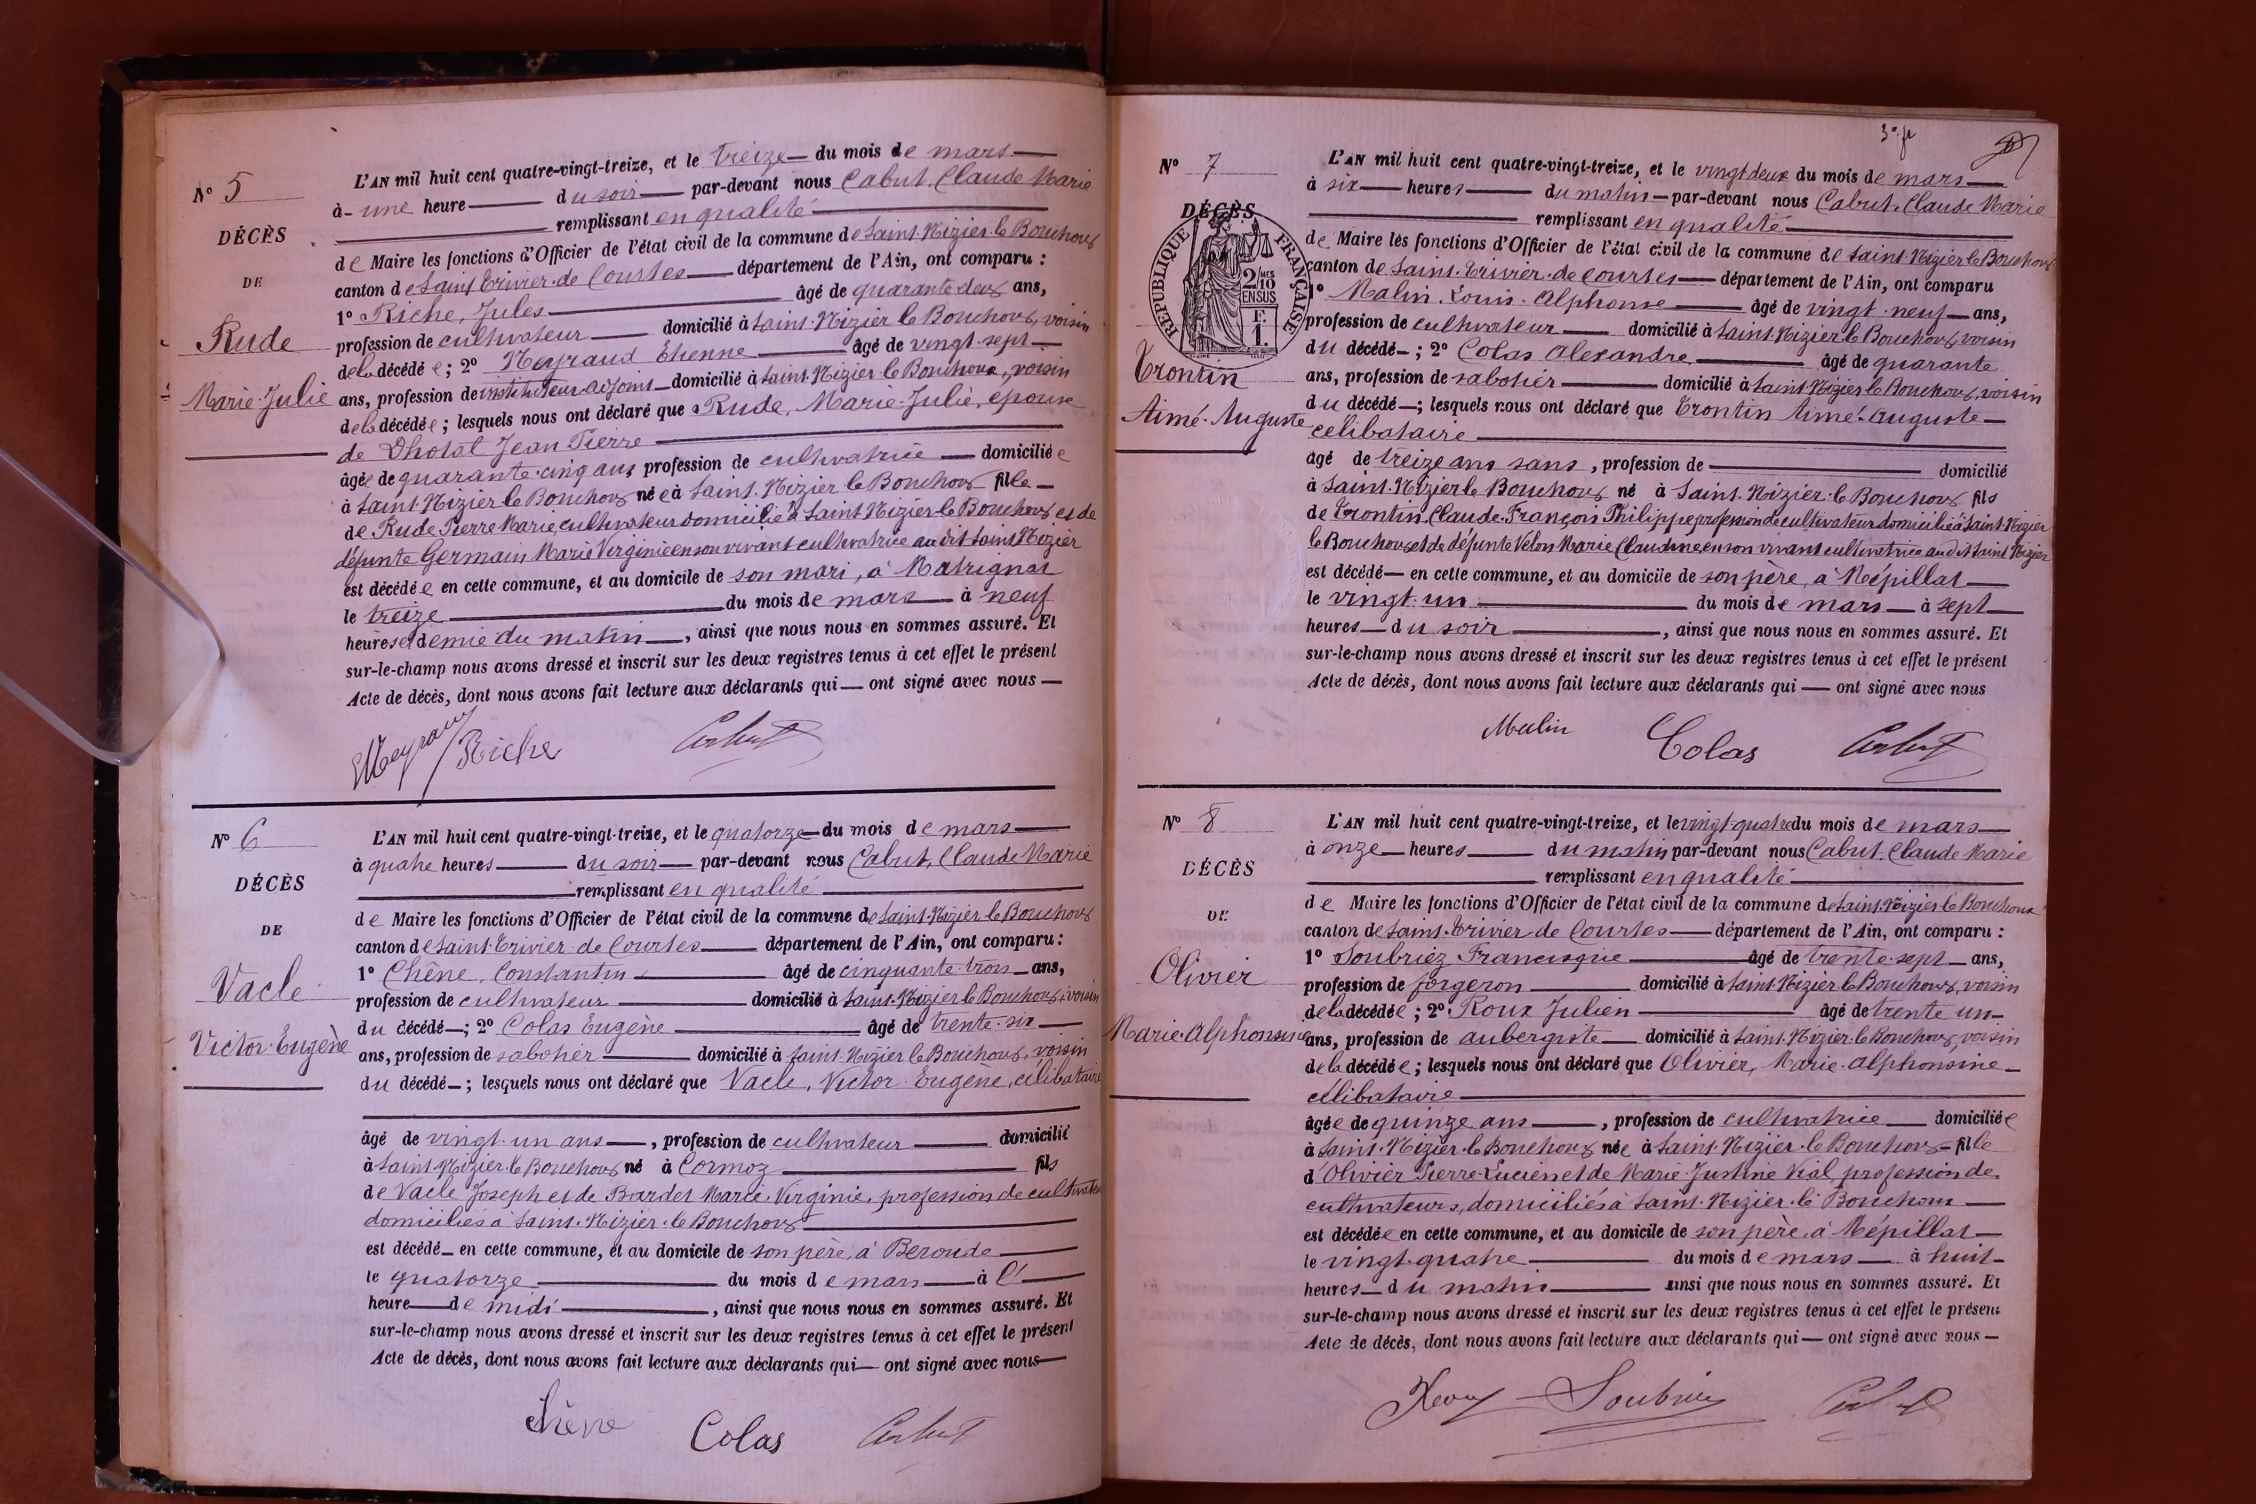 N° 5
DÉCÈS
DE
Rude
Marie-Julie
L'AN mil huit cent quatre-vingt-treize, et le treize du mois de mars
à une heure du soir par-devant nous Cabut, Claude Marie
remplissant en qualité
de Maire les fonctions d'Officier de l'état civil de la commune de Saint-Nizier-le-Bouchoux
canton de Saint-Trivier-de-Courtes département de l'Ain, ont comparu :
1° Riche, Jules âgé de quarante deux ans,
profession de cultivateur domicilié à Saint-Nizier le Bouchoux, voisin
de la décédée ; 2° Meyraud Etienne âgé de vingt-sept
ans, profession de instituteur-adjoint domicilié à Saint-Nizier-le Bouchoux, voisin
de la décédée ; lesquels nous ont déclaré que Rude, Marie-Julie, épouse
de Dhotal Jean Pierre
âgée de quarante-cinq ans, profession de cultivatrice domiciliée
à Saint-Nizier le Bouchoux née à Saint-Nizier le Bouchoux fille
de Rude Pierre Marie, cultivateur domicilié à Saint Nizier-le Bouchoux et de
défunte Germain Marie Virginie en son vivant cultivatrice audit Saint Nizier
est décédée en cette commune, et au domicile de son mari, à Matrignat
le treize du mois de mars à neuf
heures et demie du matin, ainsi que nous nous en sommes assuré. Et
sur-le-champ nous avons dressé et inscrit sur les deux registres tenus à cet effet le présent
Acte de décès, dont nous avons fait lecture aux déclarants qui ont signé avec nous
EMeyraud Riche Cabut
N° 6
DÉCÈS
DE
Vacle
Victor-Eugène
L'AN mil huit cent quatre-vingt-treize, et le quatorze du mois de mars
à quatre heures du soir par-devant nous Cabut, Claude Marie
remplissant en qualité
de Maire les fonctions d'Officier de l'état civil de la commune de Saint-Nizier le Bouchoux
canton de Saint-Trivier-de-Courtes département de l'Ain, ont comparu :
1° Chêne, Constantin âgé de cinquante-trois ans,
profession de cultivateur domicilié à Saint-Nizier le Bouchoux, voisin
du décédé ; 2° Colas Eugène âgé de trente-six
ans, profession de sabotier domicilié à Saint-Nizier le Bouchoux, voisin
du décédé ; lesquels nous ont déclaré que Vacle, Victor-Eugène, célibataire
âgé de vingt-un ans, profession de cultivateur domicilié
à Saint-Nizier-le Bouchoux né à Cormoz fils
de Vacle Joseph et de Bardet Marie-Virginie, profession de cultivateurs
domiciliés à Saint-Nizier-le Bouchoux
est décédé en cette commune, et au domicile de son père, à Beroude
le quatorze du mois de mars à l'
heure de midi, ainsi que nous nous en sommes assuré. Et
sur-le-champ nous avons dressé et inscrit sur les deux registres tenus à cet effet le présent
Acte de décès, dont nous avons fait lecture aux déclarants qui ont signé avec nous
Chêne Colas Cabut
3e f
N° 7
DÉCÈS
RÉPUBLIQUE FRANÇAISE
2/10 MES
EN SUS
F.
1.
Trontin
Aimé-Auguste
L'AN mil huit cent quatre-vingt-treize, et le vingt deux du mois de mars
à six heures du matin par-devant nous Cabut, Claude Marie
remplissant en qualité
de Maire les fonctions d'Officier de l'état civil de la commune de Saint-Nizier le Bouchoux
canton de Saint-Trivier-de-Courtes département de l'Ain, ont comparu
1° Malin, Louis-Alphonse âgé de vingt-neuf ans,
profession de cultivateur domicilié à Saint-Nizier le Bouchoux, voisin
du décédé ; 2° Colas Alexandre âgé de quarante
ans, profession de sabotier domicilié à Saint-Nizier le Bouchoux, voisin
du décédé ; lesquels nous ont déclaré que Trontin Aimé-Auguste
célibataire
âgé de treize ans sans, profession de domicilié
à Saint-Nizier le Bouchoux né à Saint-Nizier-le Bouchoux fils
de Trontin, Claude-François Philippe, profession de cultivateur domicilié à Saint-Nizier
le Bouchoux et de défunte Velon Marie Claudine en son vivant cultivatrice audit Saint Nizier
est décédé en cette commune, et au domicile de son père, à Népillat
le vingt-un du mois de mars à sept
heures du soir, ainsi que nous nous en sommes assuré. Et
sur-le-champ nous avons dressé et inscrit sur les deux registres tenus à cet effet le présent
Acte de décès, dont nous avons fait lecture aux déclarants qui ont signé avec nous
Malin Colas Cabut
N° 8
DÉCÈS
DE
Olivier
Marie-Alphonsine
L'AN mil huit cent quatre-vingt-treize, et le vingt-quatre du mois de mars
à onze heures du matin par-devant nous Cabut, Claude Marie
remplissant en qualité
de Maire les fonctions d'Officier de l'état civil de la commune de Saint-Nizier le Bouchoux
canton de Saint-Trivier de Courtes département de l'Ain, ont comparu :
1° Soubriez Francisque âgé de trente-sept ans,
profession de forgeron domicilié à Saint-Nizier le Bouchoux, voisin
de la décédée ; 2° Roux Julien âgé de trente un
ans, profession de aubergiste domicilié à Saint-Nizier-le Bouchoux, voisin
de la décédée ; lesquels nous ont déclaré que Olivier, Marie-Alphonsine
célibataire
âgée de quinze ans, profession de cultivatrice domiciliée
à Saint-Nizier-le Bouchoux née à Saint-Nizier-le Bouchoux fille
d'Olivier Pierre-Lucien et de Marie-Justine Vial, profession de
cultivateurs, domiciliés à Saint-Nizier-le Bouchoux
est décédée en cette commune, et au domicile de son père, à Népillat
le vingt-quatre du mois de mars à huit
heures du matin ainsi que nous nous en sommes assuré. Et
sur-le-champ nous avons dressé et inscrit sur les deux registres tenus à cet effet le présent
Acte de décès, dont nous avons fait lecture aux déclarants qui ont signé avec nous
Roux Soubriez Cabut